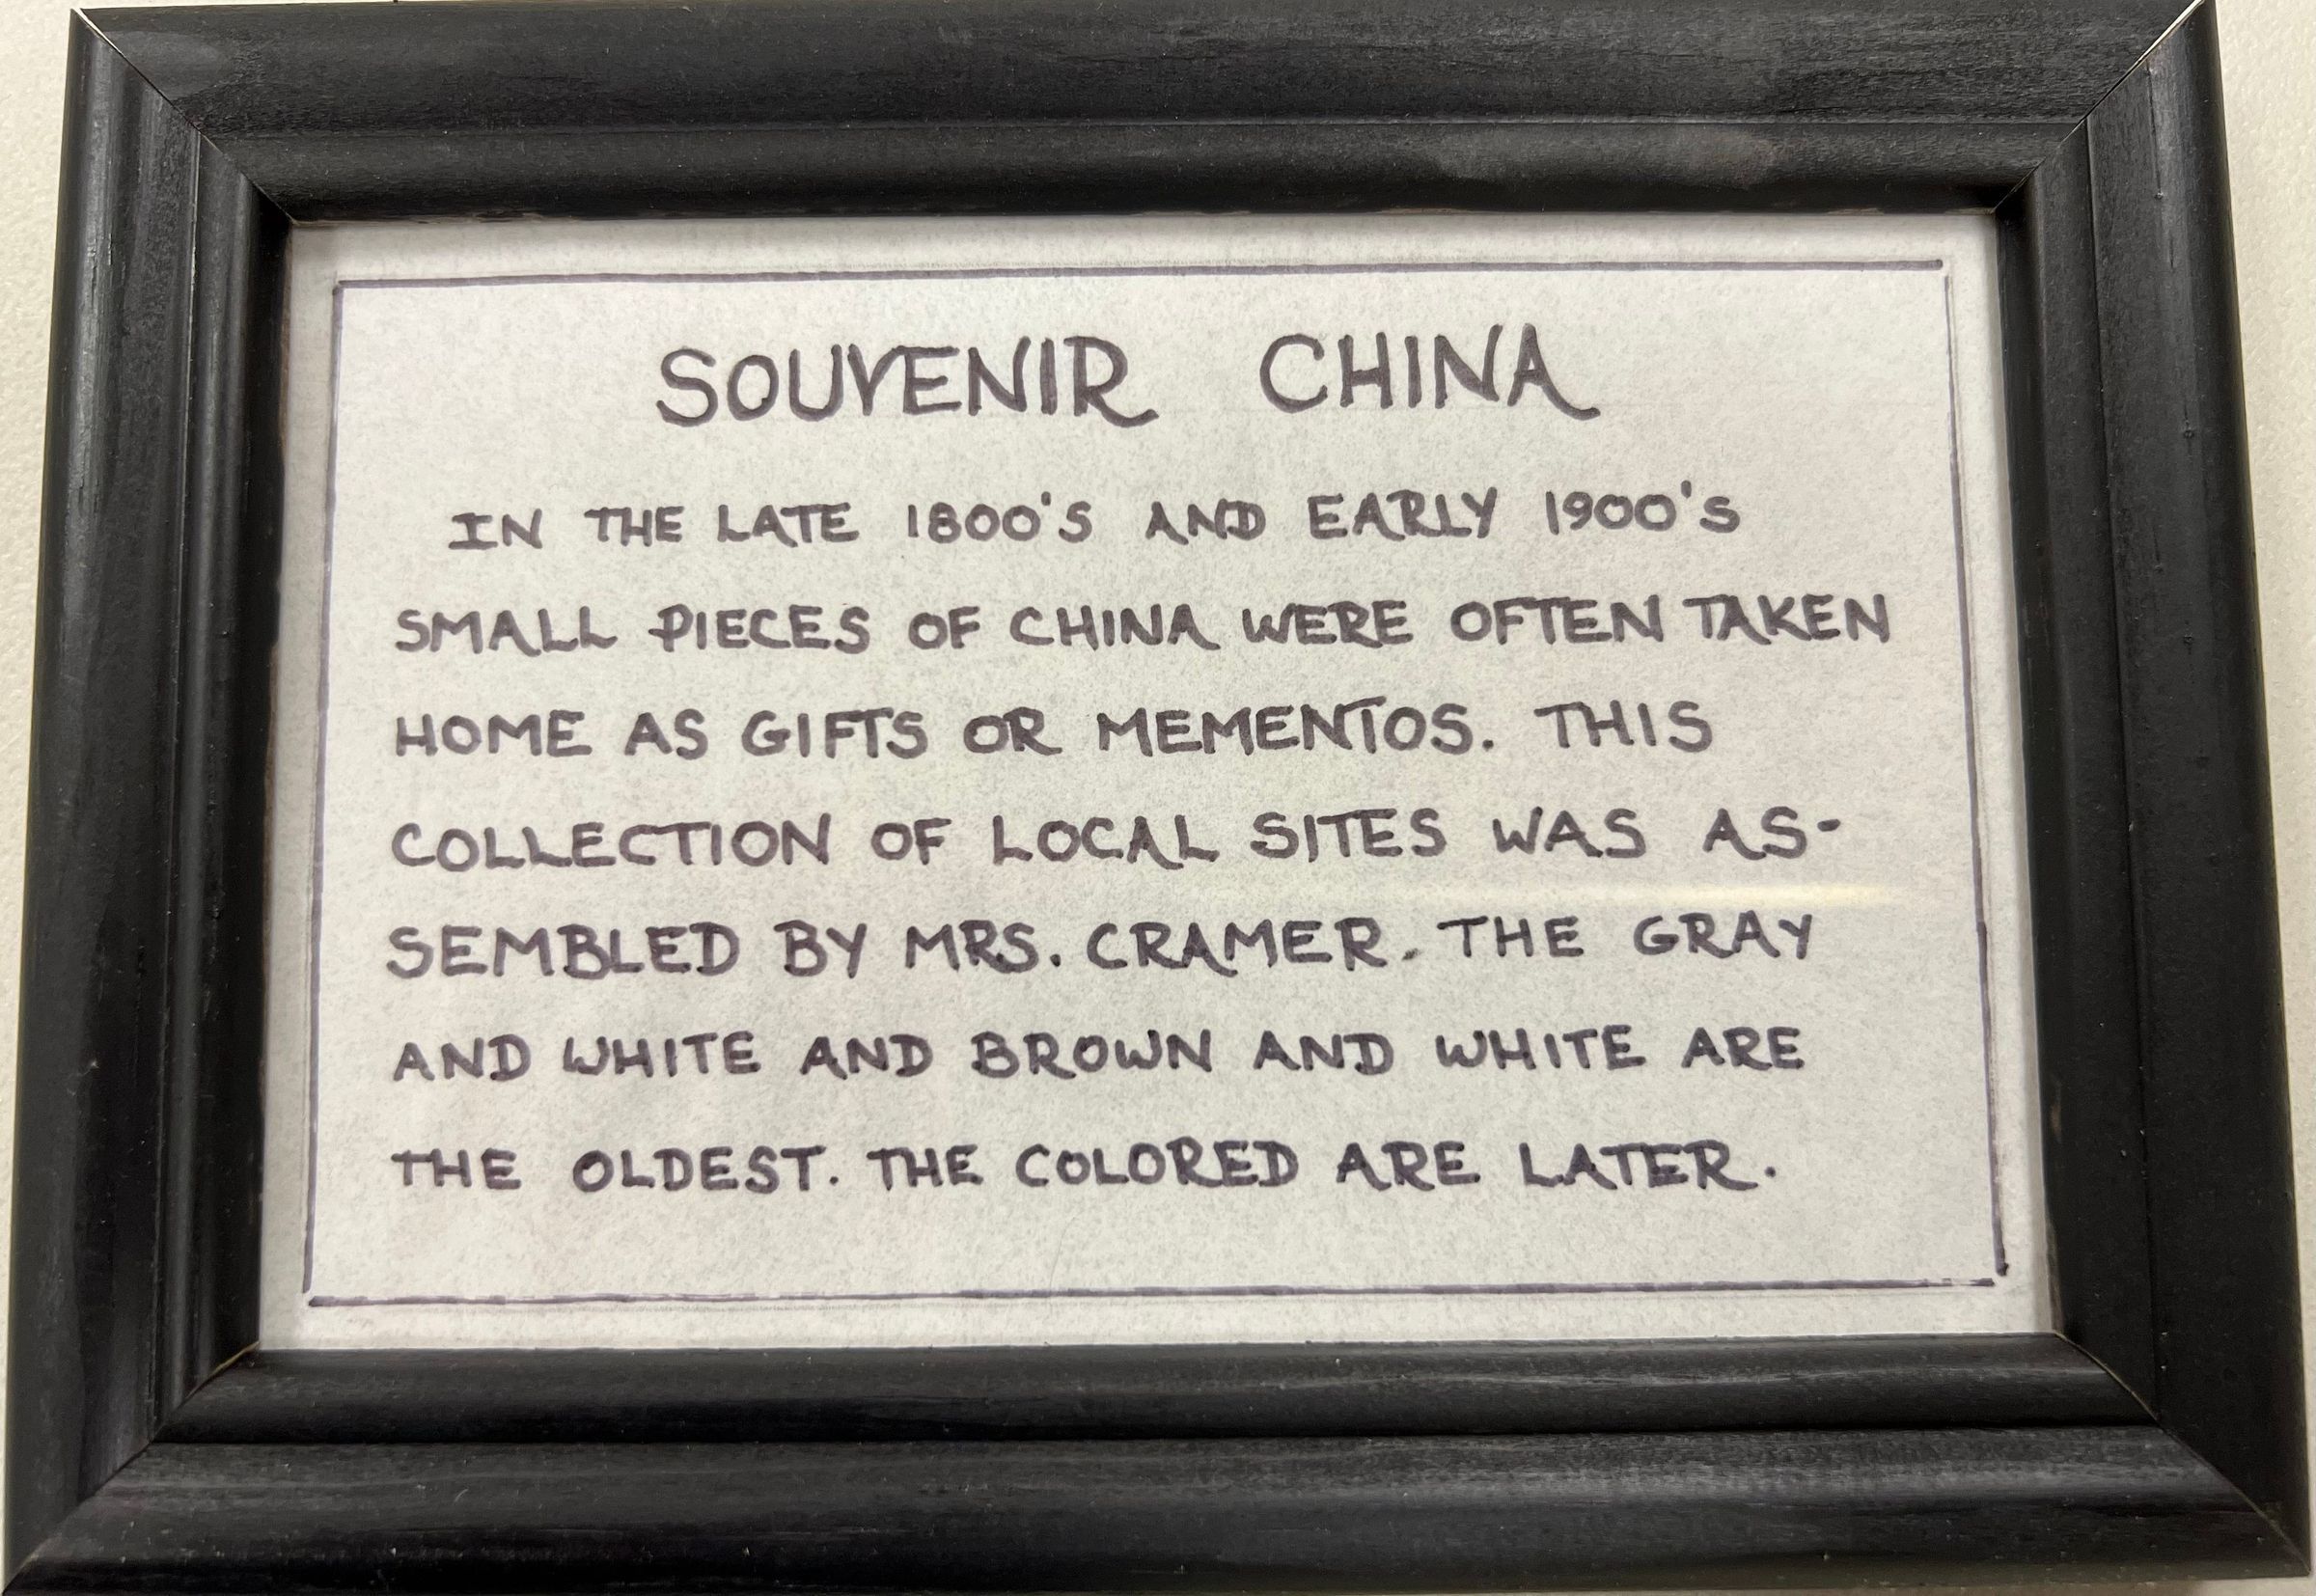 SOUVENIR CHINA
IN THE LATE 1800'S AND EARLY 1900'S
SMALL PIECES OF CHINA WERE OFTEN TAKEN
HOME AS GIFTS OR MEMENTOS. THIS
COLLECTION OF LOCAL SITES WAS AS-
SEMBLED BY MRS. CRAMER. THE GRAY
AND WHITE AND BROWN AND WHITE ARE
THE OLDEST. THE COLORED ARE LATER.